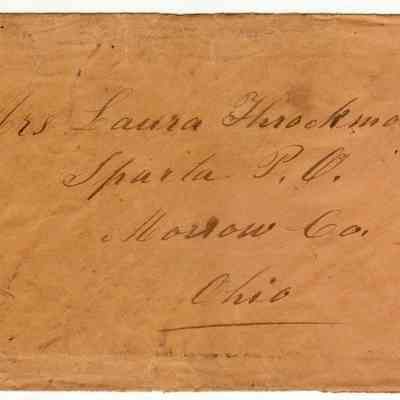 Mrs Laura Throckmo
Sparta P. O.
Morrow Co.
Ohio